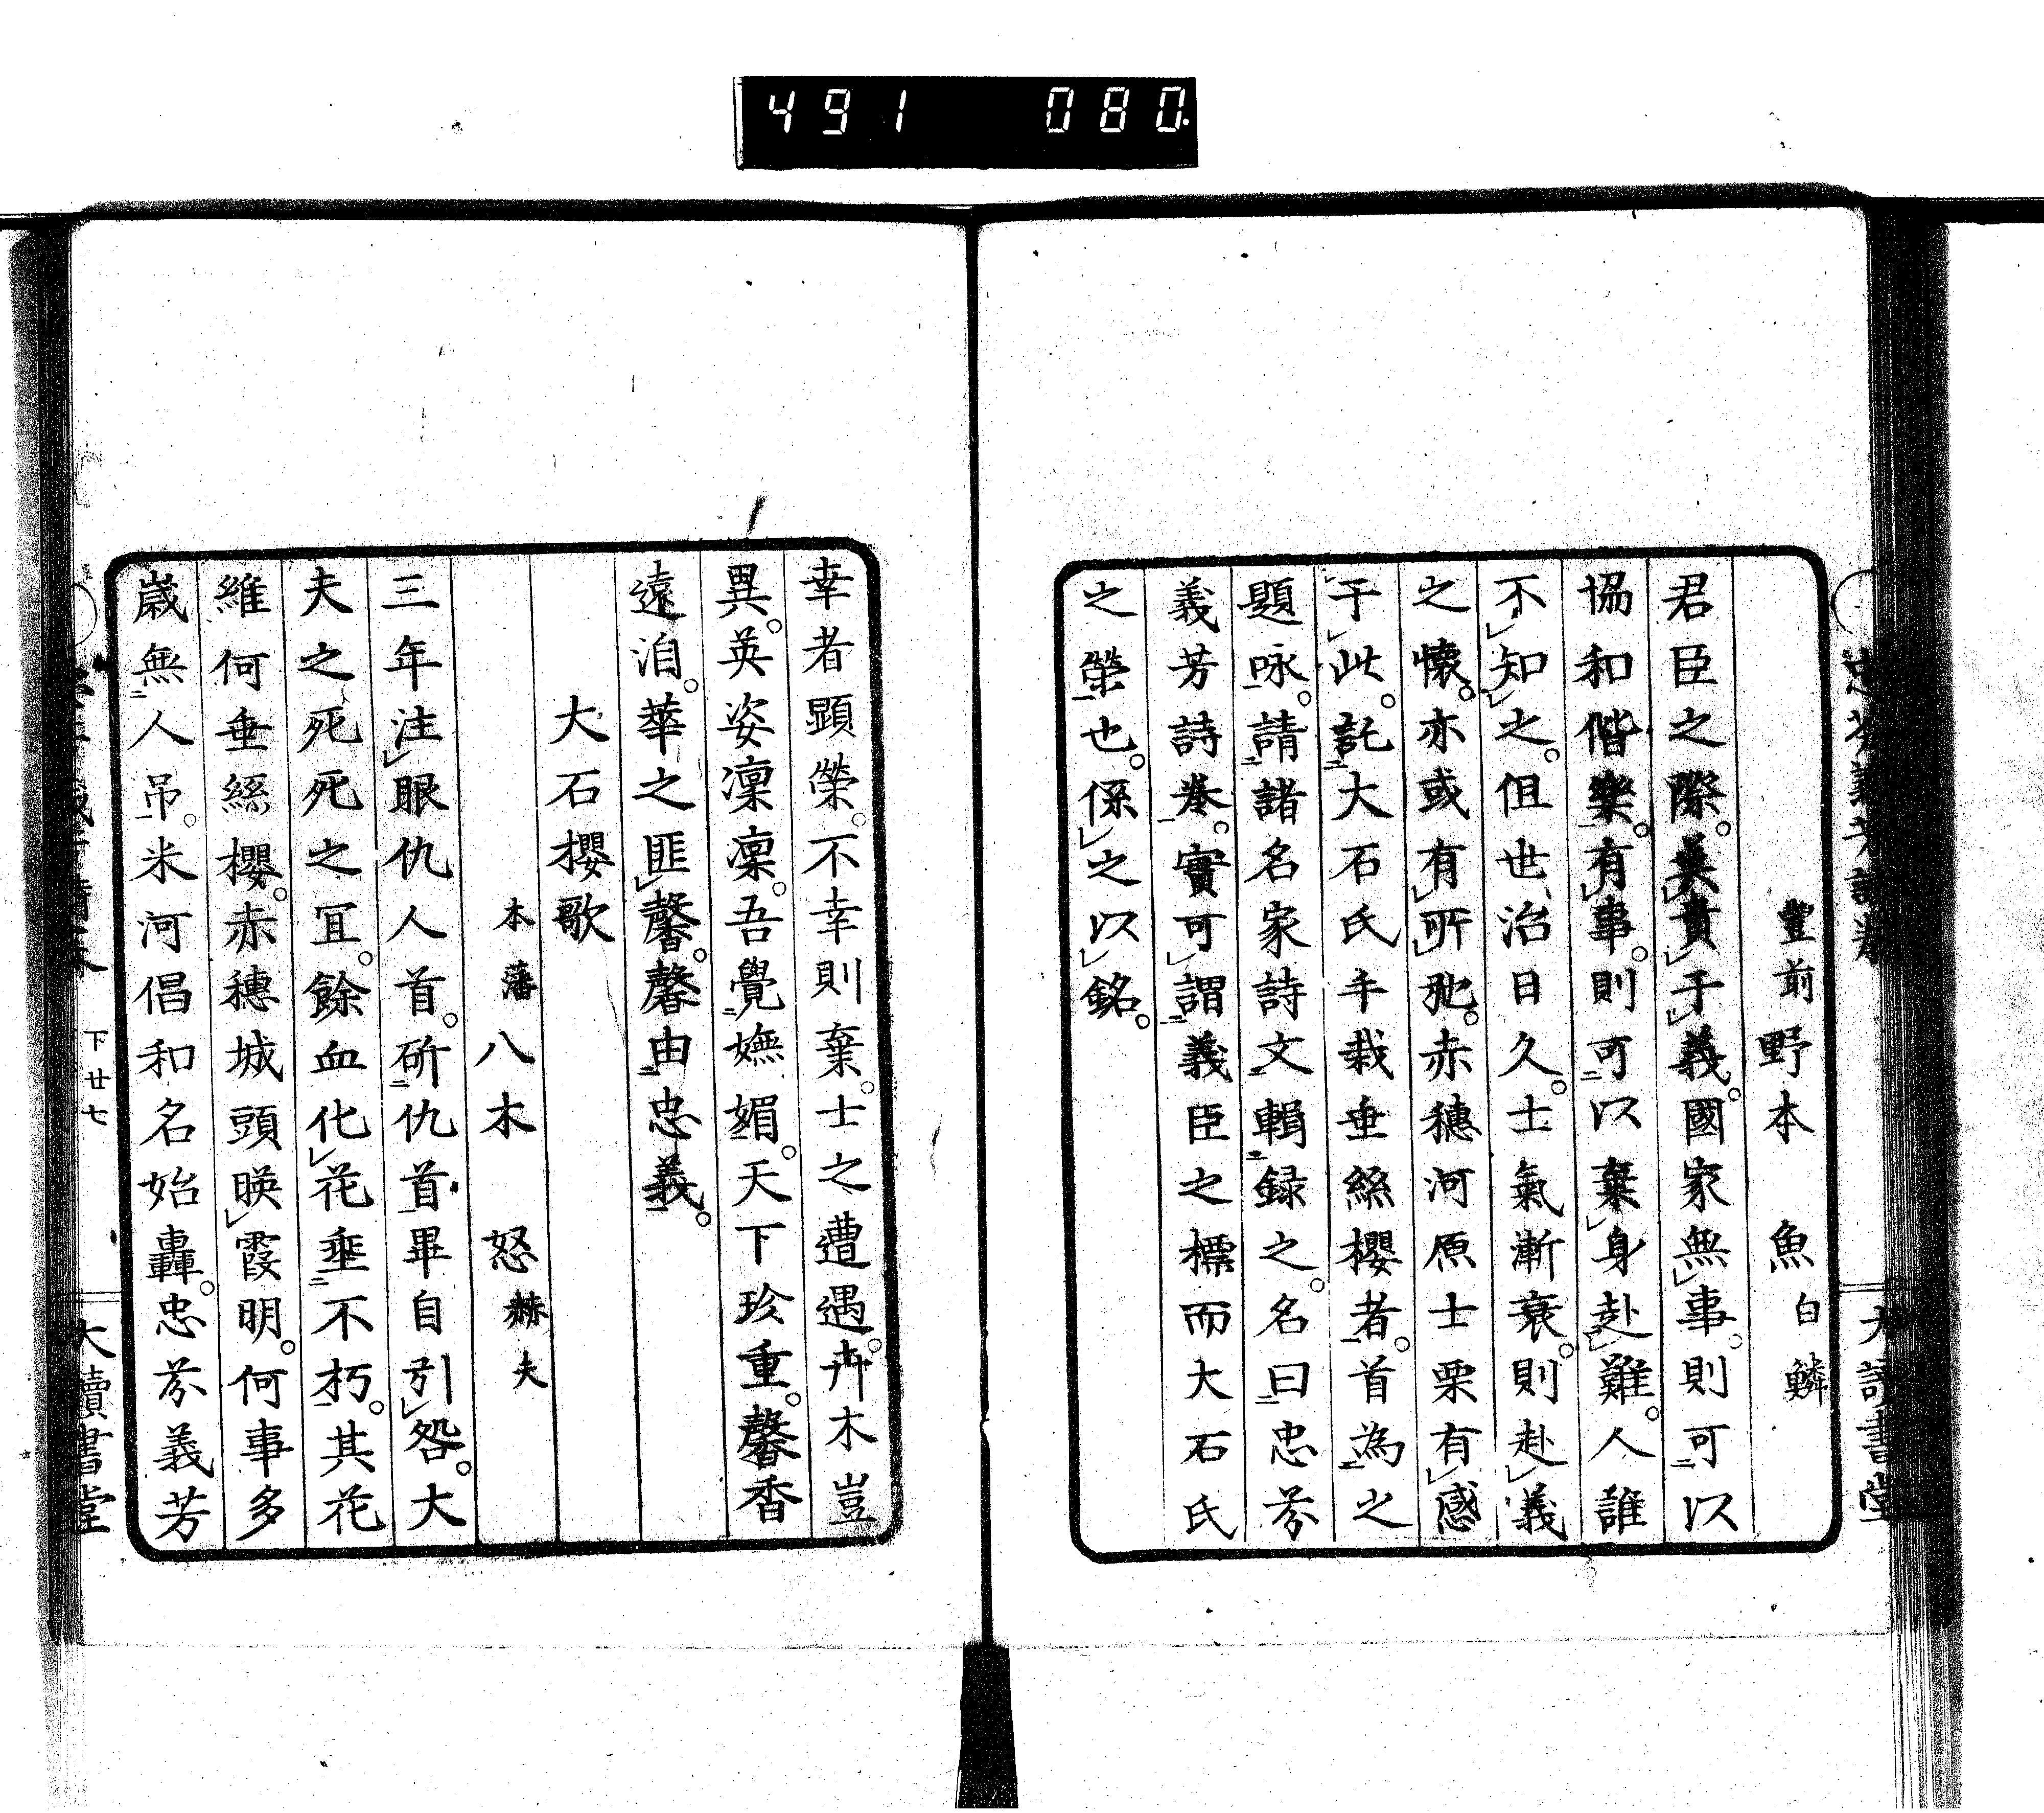 491 080
豐前 野本 魚 白鱗
君臣之際。莫貴于義。國家無事。則可以
協和偕樂。有事。則可以棄身赴難。人誰
不知之。但世治日久。士氣漸衰。則赴義
之懷。亦或有所弛。赤穗河原士栗有感
于此。託大石氏手栽垂絲櫻者。首為之
題咏。請諸名家詩文輯録之。名曰忠芬
義芳詩卷。實可謂義臣之標而大石氏
之榮也。係之以銘。
幸者顕榮。不幸則棄。士之遭遇。卉木豈
異。英姿凜凜。吾覺嫵媚。天下珍重。馨香
遠洎。華之匪馨。馨由忠義。
大石櫻歌
本藩 八木 怒 赫夫
三年注眼仇人首。斫仇首畢自引咎。大
夫之死死之冝。餘血化花埀不朽。其花
維何垂絲櫻。赤穗城頭暎霞明。何事多
歳無人吊。米河倡和名始轟。忠芬義芳
下廿七
大讀書堂